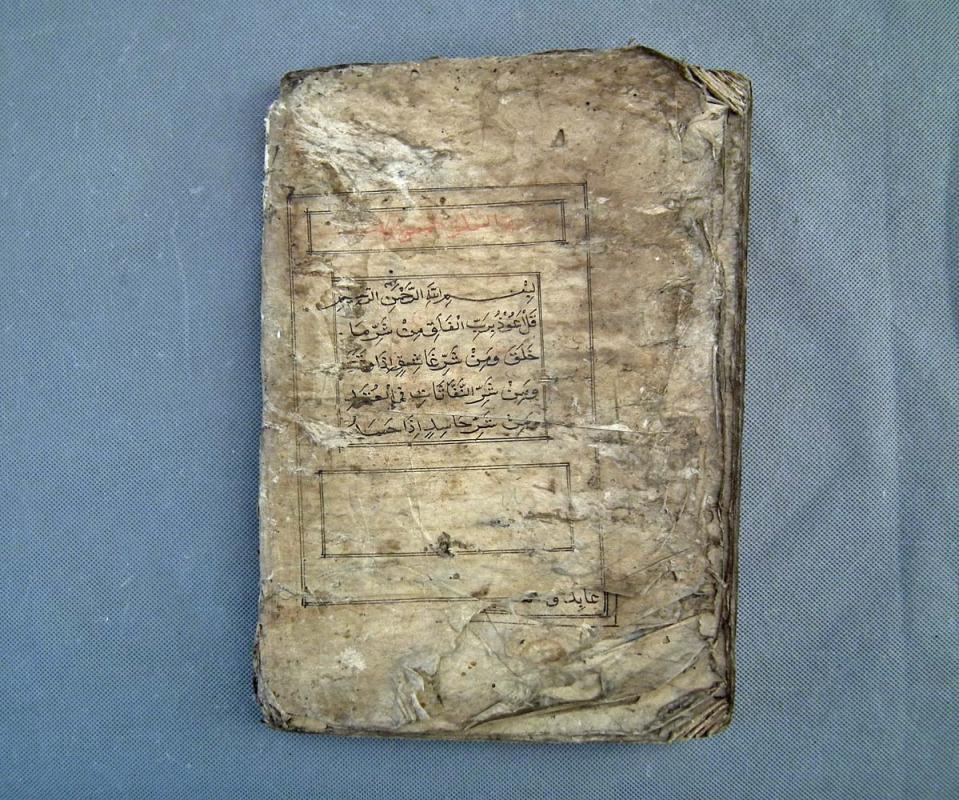 بِسْمِ اللّٰهِ الرَّحْمٰنِ الرَّحِيمِ
قُلْ عُوْذُ بِرَبِّ الْفَلَقِ مِنْ شَرِّ مَا
خَلَقَ وَمِنْ شَرِّ غَاسِقٍ اِذَا
وَمِنْ شَرِّ النَّفَّاثَاتِ فِي الْعُقَدِ
وَمِنْ شَرِّ حَاسِدٍ اِذَا حَسَدَ
عابد و